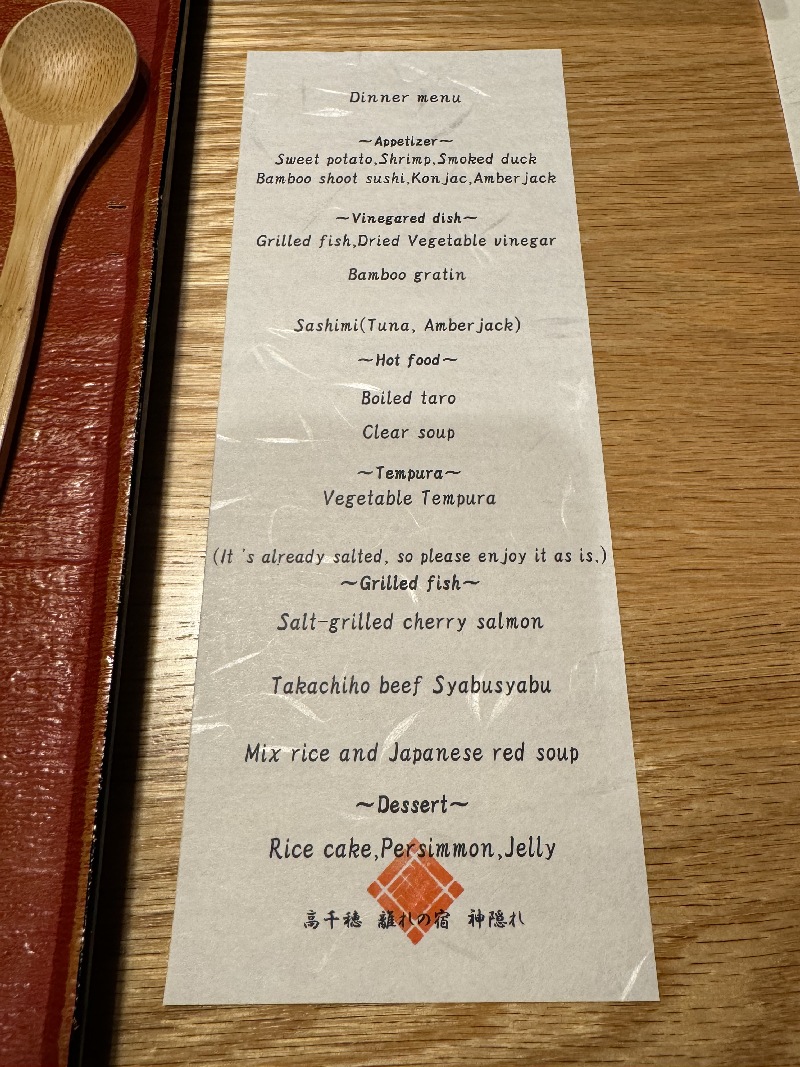 Dinner menu
～Appetizer～
Sweet potato,Shrimp,Smoked duck
Bamboo shoot sushi,Konjac,Amberjack
～Vinegared dish～
Grilled fish,Dried Vegetable vinegar
Bamboo gratin
Sashimi(Tuna, Amberjack)
～Hot food～
Boiled taro
Clear soup
～Tempura～
Vegetable Tempura
(It 's already salted, so please enjoy it as is.)
～Grilled fish～
Salt-grilled cherry salmon
Takachiho beef Syabusyabu
Mix rice and Japanese red soup
～Dessert～
Rice cake,Persimmon,Jelly
高千穂 離れの宿 神隠れ